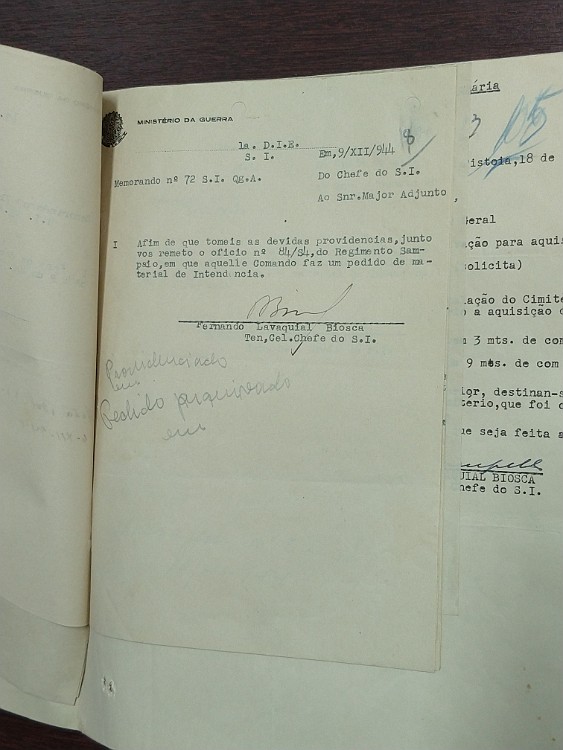 MINISTÉRIO DA GUERRA
1a. D.I.E.
S. I.
Em,9/XII/944
8
Memorando nº 72 S.I. Qg.A.
Do Chefe do S.I.
Ao Snr.Major Adjunto
I Afim de que tomeis as devidas providencias,junto
vos remeto o oficio nº 84/S4,do Regimento Sam-
paio,em que aquelle Comando faz um pedido de ma-
terial de Intendencia.
Fernando Lavaquial Biosca
Ten,Cel.Chefe do S.I.
Providenciado
em
Pedido arquivado
em
ária
105
istoia,18 de
eral
ção para aquis
solicita)
ação do Cimite
o a aquisição d
3 mts. de com
9 mts. de com
or, destinan-s
erio,que foi c
ue seja feita a
UIAL BIOSCA
hefe do S.I.